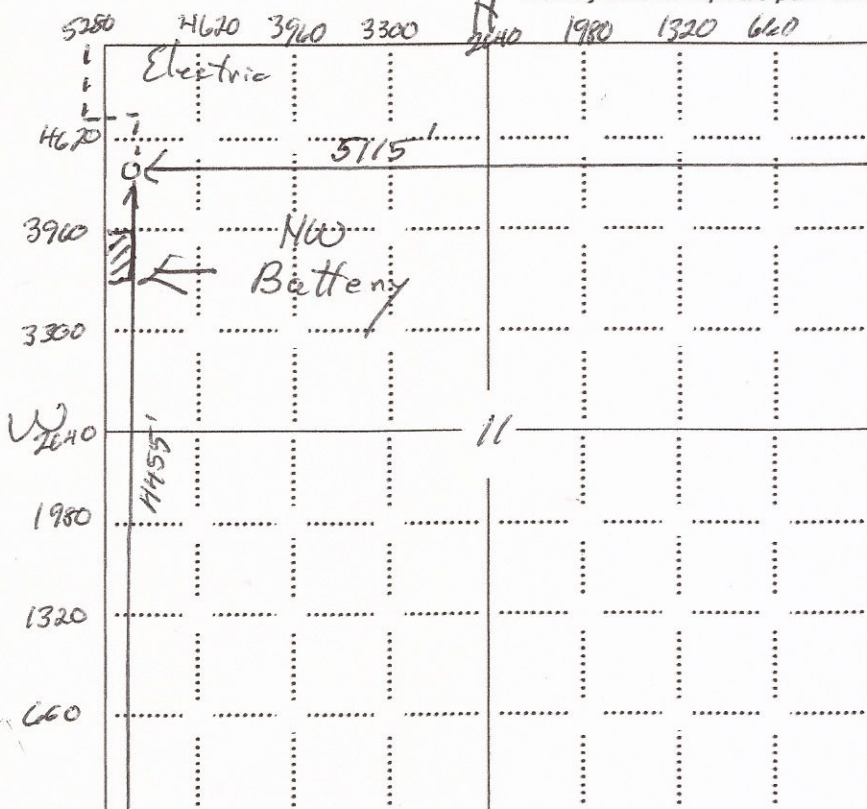 N
5280 4620 3960 3300 2640 1980 1320 660
Electric
4620
5115'
3960
NW
Battery
3300
W
2640
11
4455'
1980
1320
660